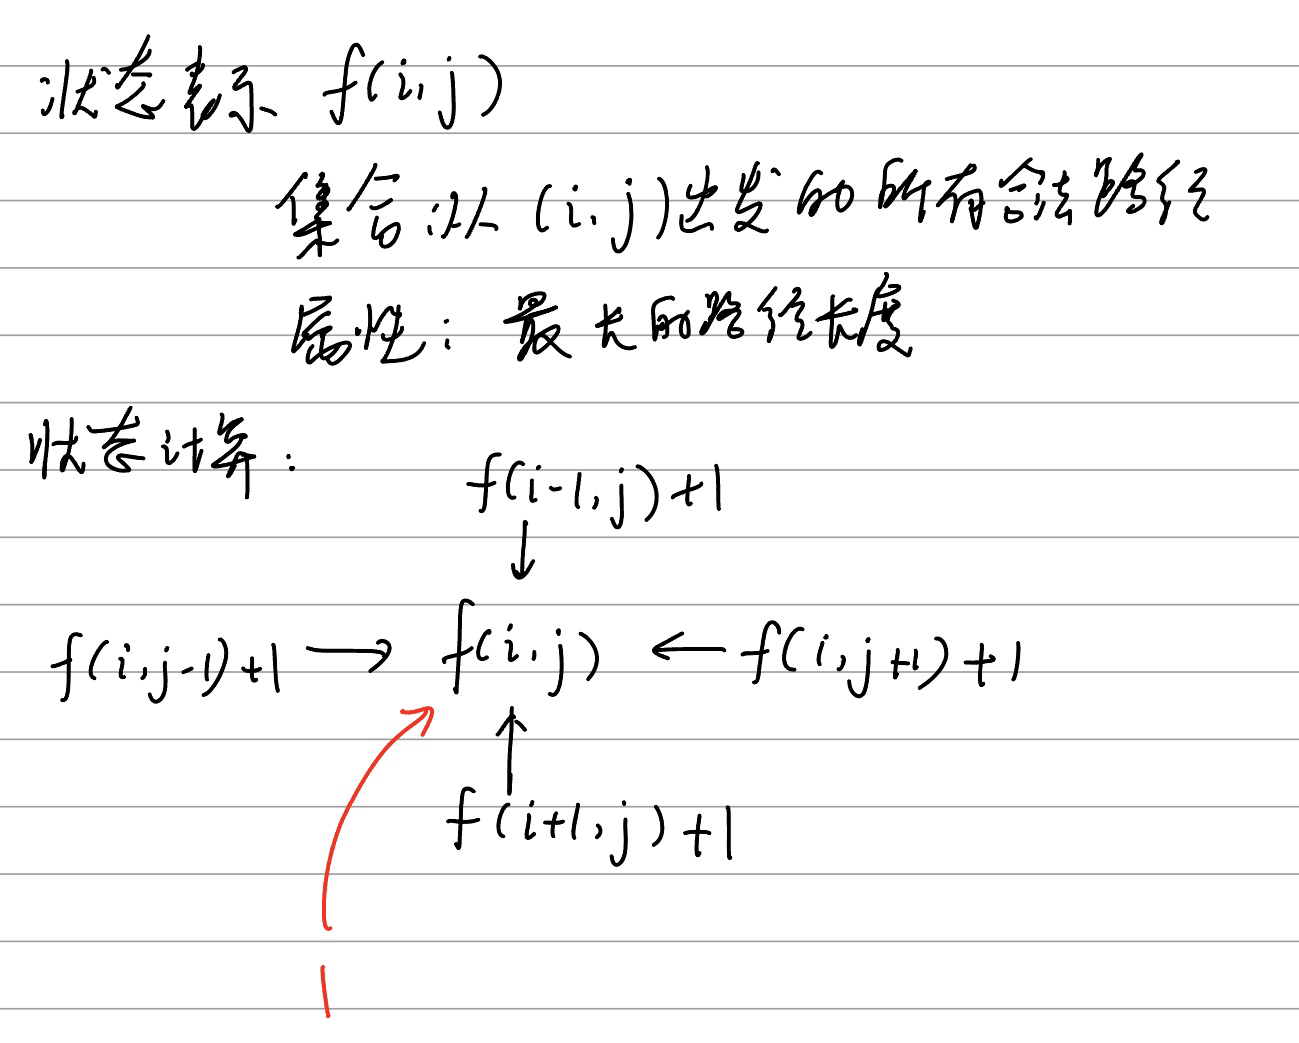 状态表示 f(i,j)
集合:从(i,j)出发的所有合法路径
属性:最大的路径长度
状态计算:
f(i-1,j)+1
↓
f(i,j-1)+1 → f(i,j) ← f(i,j+1)+1
↑
f(i+1,j)+1
1